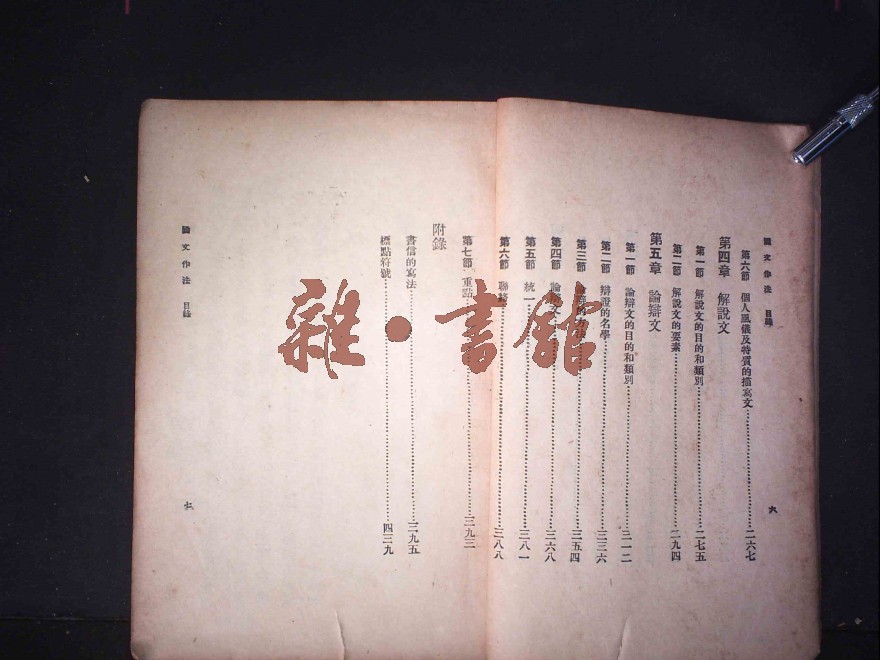 國文作法 目錄
第六節 個人風儀及特質的描寫文 二六七
第四章 解說文
第一節 解說文的目的和類別 二七五
第二節 解說文的要素 二九四
第五章 論辯文
第一節 論辯文的目的和類別 三一二
第二節 辯證的名學 三三六
第三節 三五四
第四節 論 文 三六八
第五節 統一 三八一
第六節 聯 三八八
第七節 重點 三九三
附錄
書信的寫法 三九五
標點符號 四三九
國文作法 目錄
六
七
雜·書館